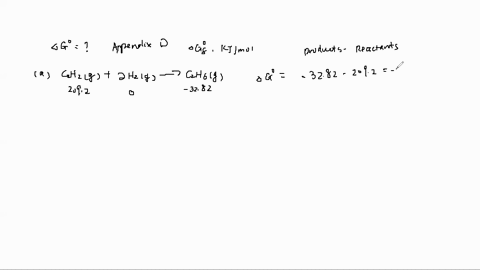 ΔG° = ? Appendix D ΔG°f. KJ/mol Products - Reactants
(a) C2H2(g) + 2H2(g) → C2H6(g) ΔG° = -32.82 - 209.2 = -
209.2 0 -32.82